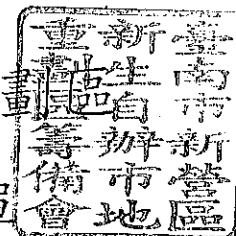 臺南市新營區
新生自辦市地
重劃區籌備會
劃區